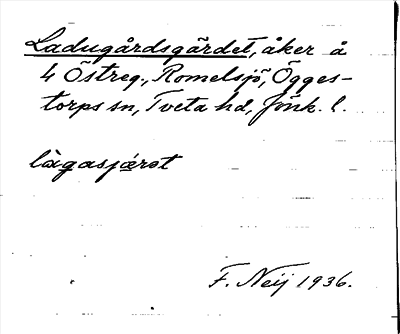 Ladugårdsgärdet, åker å
4 Östreg., Romelsjö, Ögges-
torps sn, Tveta hd, Jönk. l.
làgasjærət
F. Neij 1936.